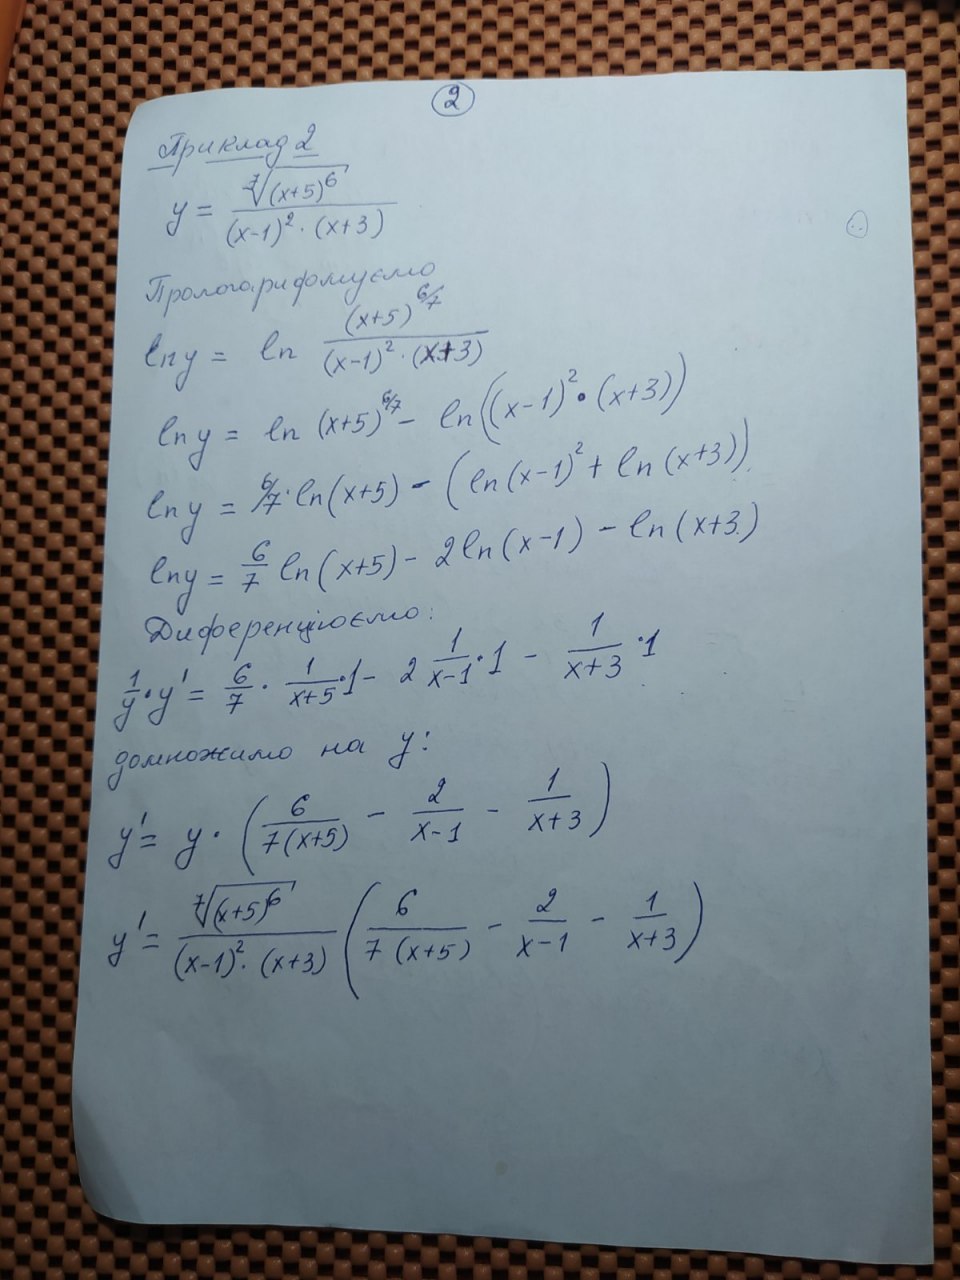 2
Приклад 2
y = ⁷√(x+5)⁶ / (x-1)² · (x+3)
Прологарифмуємо
ln y = ln (x+5)^6/7 / (x-1)² · (x+3)
ln y = ln (x+5)^6/7 - ln((x-1)² · (x+3))
ln y = 6/7 · ln(x+5) - (ln(x-1)² + ln(x+3))
ln y = 6/7 ln(x+5) - 2ln(x-1) - ln(x+3)
Диференціюємо:
1/y · y' = 6/7 · 1/x+5 · 1 - 2 1/x-1 · 1 - 1/x+3 · 1
домножимо на y:
y' = y · (6/7(x+5) - 2/x-1 - 1/x+3)
y' = ⁷√(x+5)⁶ / (x-1)² · (x+3) (6/7(x+5) - 2/x-1 - 1/x+3)